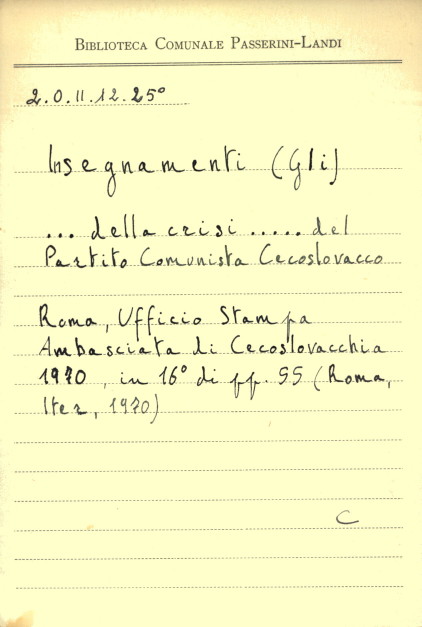 BIBLIOTECA COMUNALE PASSERINI-LANDI
2.0.II.12.25°
Insegnamenti (Gli)
... della crisi ..... del
Partito Comunista Cecoslovacco
Roma, Ufficio Stampa
Ambasciata di Cecoslovacchia
1970, in 16° di pp. 55 (Roma,
Iter, 1970)
C